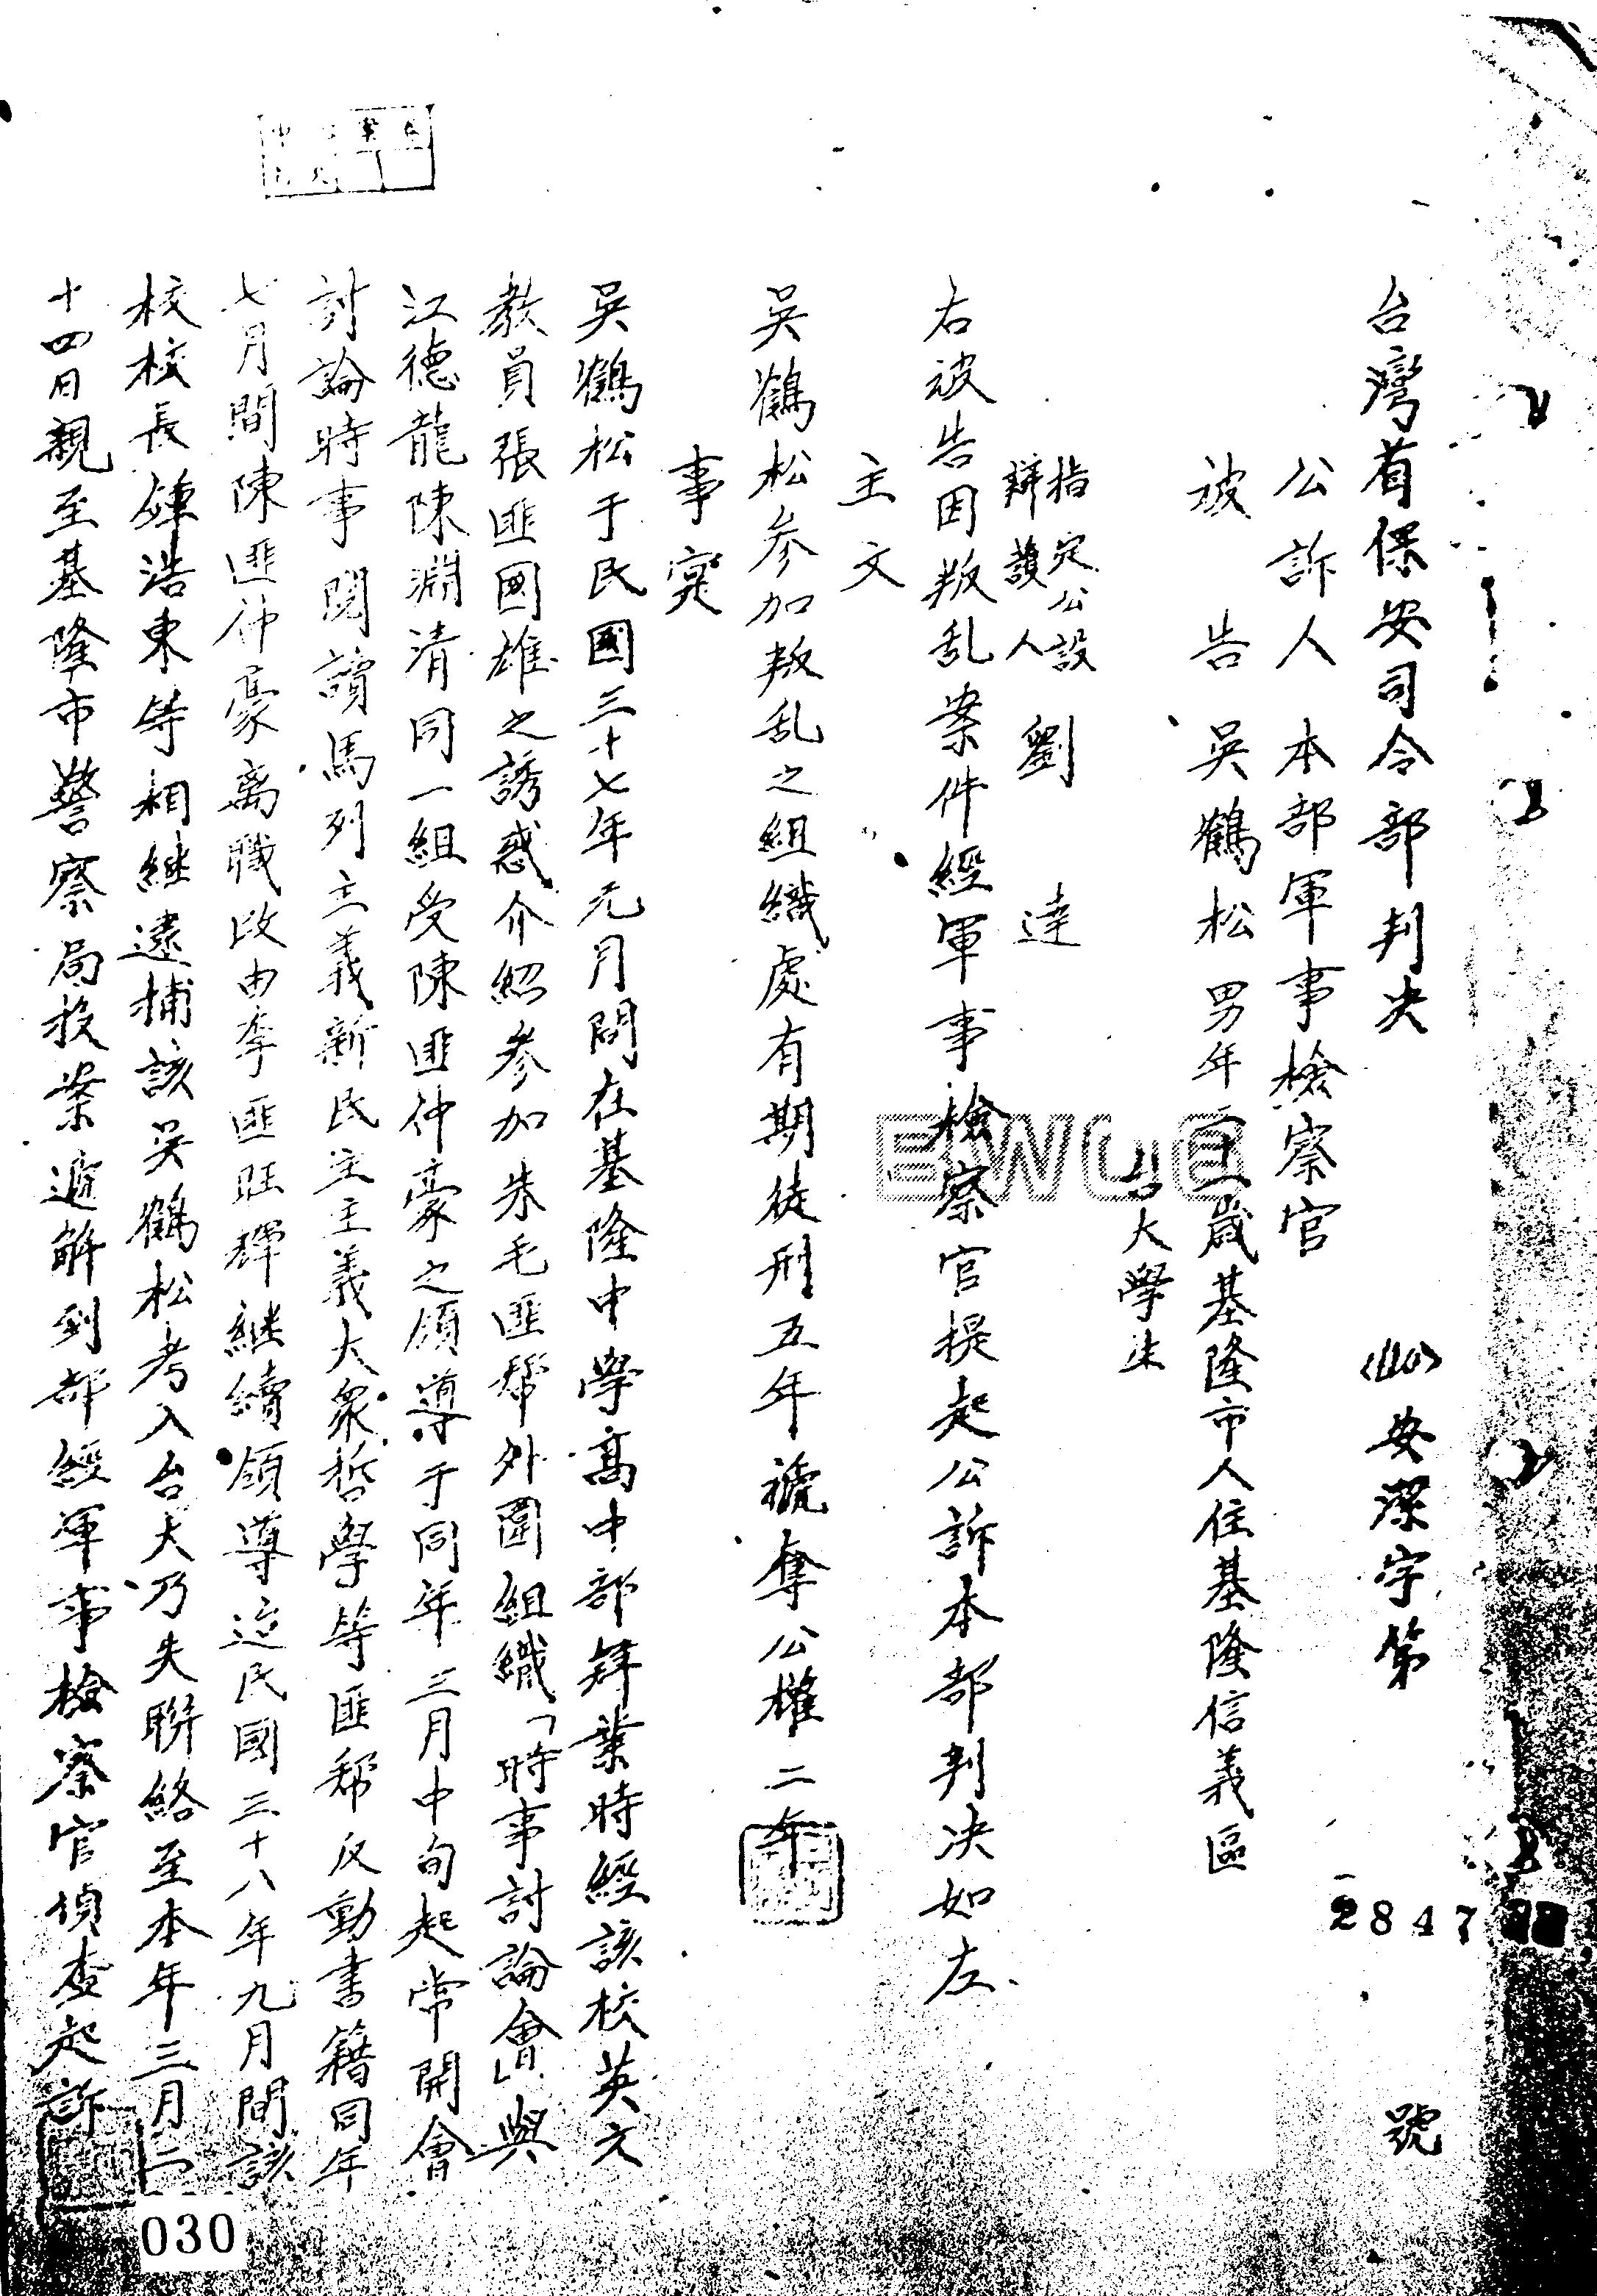 台灣省保安司令部判决
安潔字第 2847 號
公訴人 本部軍事檢察官
被告 吳鶴松 男年二十一歲基隆市人住基隆信義區
台大學生
指定公設
辯護人 劉達
右被告因叛乱案件經軍事檢察官提起公訴本部判决如左
主文
吳鶴松参加叛乱之組織處有期徒刑五年褫奪公權二年
事实
吳鶴松于民國三十七年元月間在基隆中學高中部肄業時經該校英文
教員張匪國雄之誘惑介紹参加朱毛匪帮外圍組織「時事討論會」與
江德龍陳淵清同一組受陳匪仲豪之領導于同年三月中旬起常開會
討論時事閱讀馬列主義新民主主義大衆哲學等匪帮反動書籍同年
七月間陳匪仲豪离職改由李匪旺輝継續領導迨民國三十八年九月間該
校校長鍾浩東等相継逮捕該吳鶴松考入台大乃失聯絡至本年三月二
十四日親至基隆市警察局投案遞解到部經軍事檢察官偵查起訴
030
BWUB